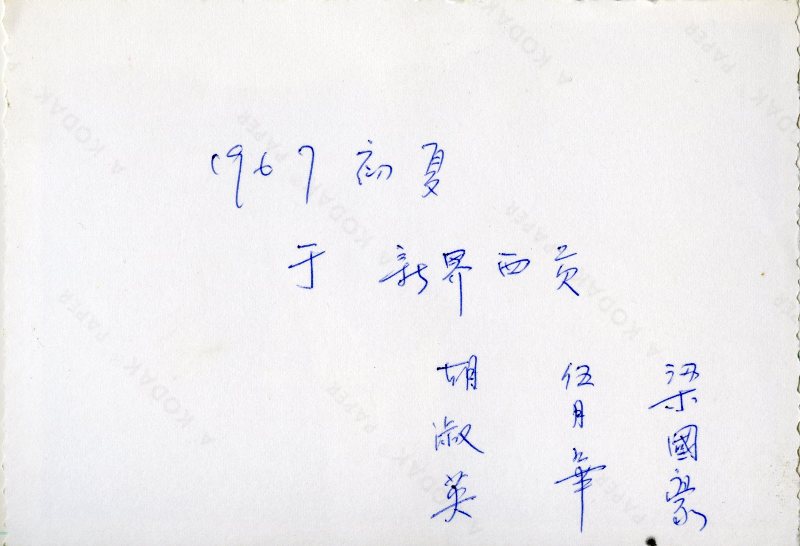 1967 初夏
于 新界西贡
梁國豪
伍月華
胡淑英
A KODAK PAPER
A KODAK PAPER
A KODAK PAPER
A KODAK PAPER